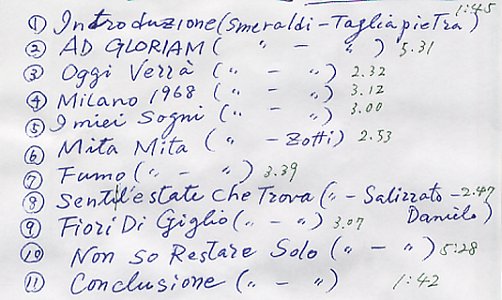 ① Introduzione (Smeraldi - Tagliapietra) 1:45
② AD GLORIAM ( " - " ) 5.31
③ Oggi Verrà ( " - " ) 2.32
④ Milano 1968 ( " - " ) 3.12
⑤ I miei Sogni ( " - " ) 3.00
⑥ Mita Mita ( " - Zotti) 2.53
⑦ Fumo ( " - " ) 3.39
⑧ Senti l'estate che Trova ( " - Salizzato - 2.47
Danielo)
⑨ Fiori Di Giglio ( " - " ) 3.07
⑩ Non so Restare Solo ( " - " ) 5:28
⑪ Conclusione ( " - " ) 1:42